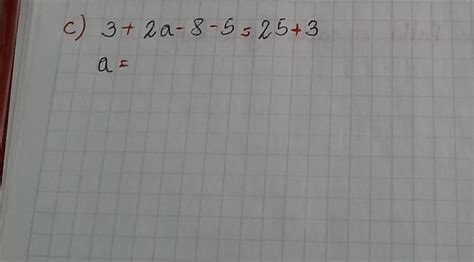 c) 3 + 2a - 8 - 5 = 25 + 3
a =